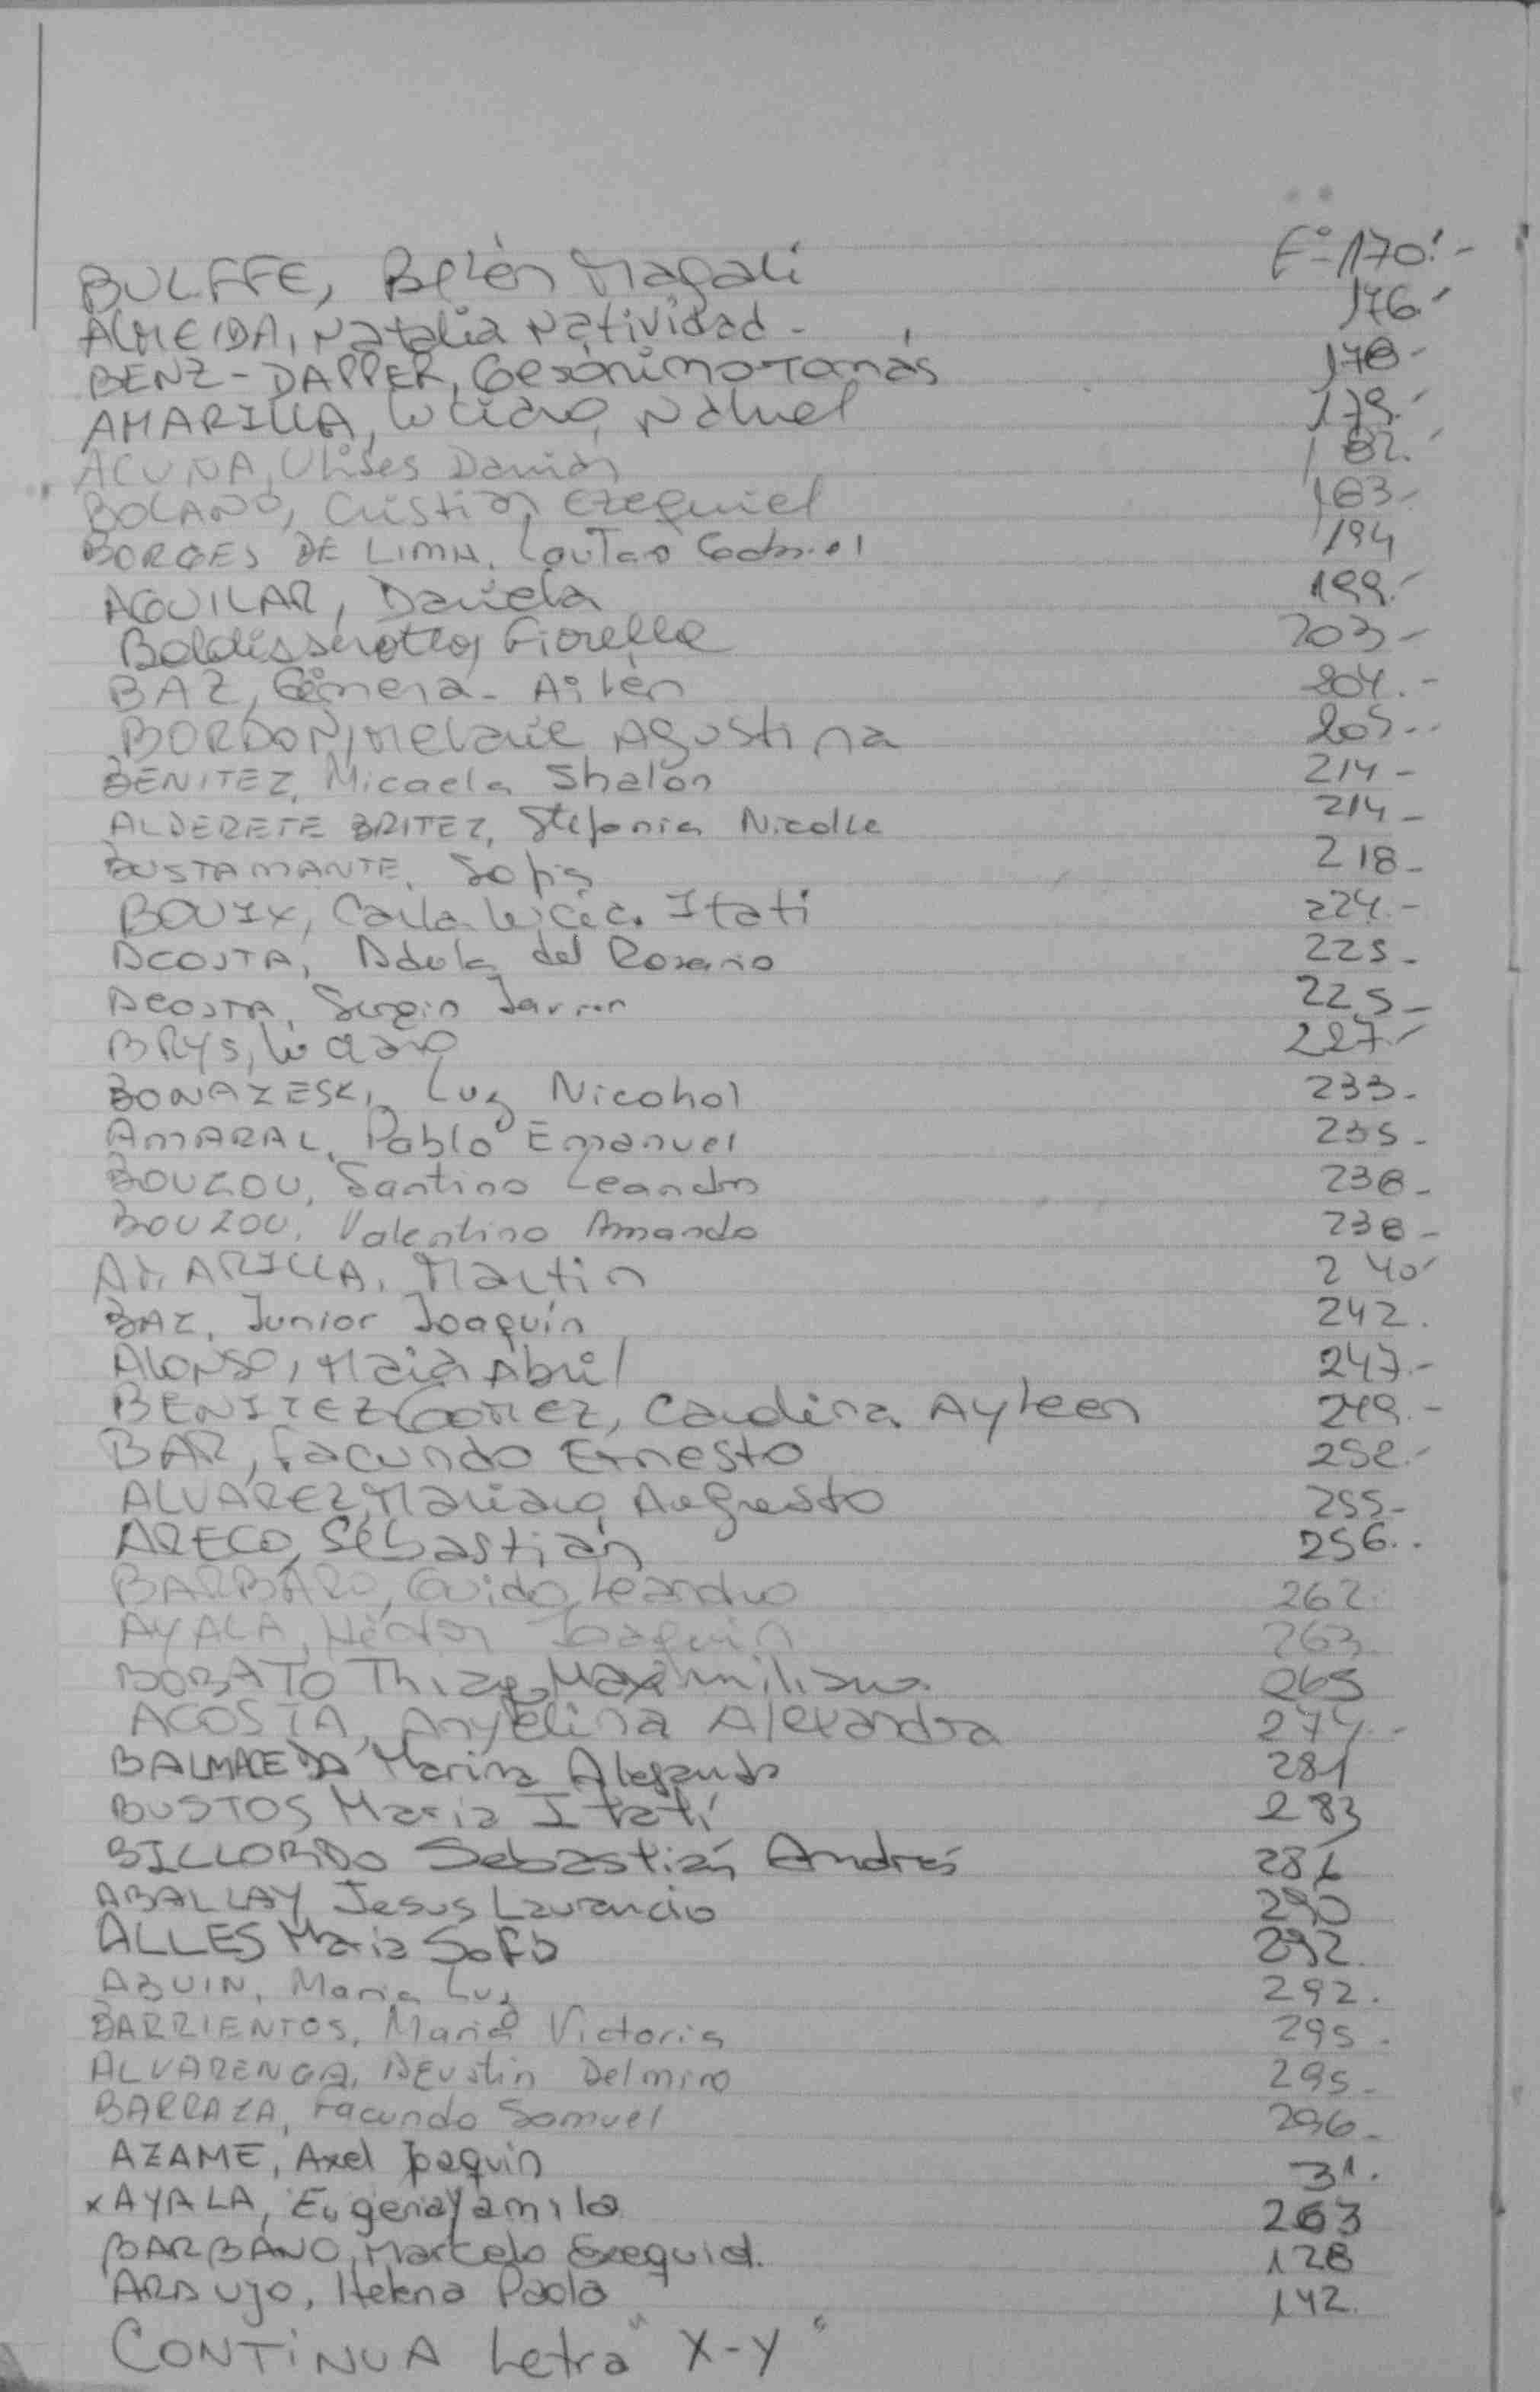 BULFFE, Belén Magali Fº 170.-
ALMEIDA, Natalia Natividad - 176.-
BENZ-DAPPER, Gerónimo Tomás 178-
AMARILLA, Luciano Nahuel 179.-
ACUNA, Ulises Damián 182.-
BOLANO, Cristian Ezequiel 183-
BORGES DE LIMA, Lautaro Gabriel 194
AGUILAR, Daniela 199.-
Boldisserotto, Fiorella 203-
BAZ, Gimena - Ailén 204.-
BORDON, Melanie Agustina 205..
BENITEZ, Micaela Shalon 214-
ALDERETE BRITEZ, Stefania Nicolle 214-
BUSTAMANTE, Sofia 218-
BOUIX, Carla Lucia Itati 224.-
ACOSTA, Adela del Rosario 225-
ACOSTA, Sergio 225-
BRYS, Luciano 227-
BONAZESKI, Luz Nicohol 233-
AMARAL, Pablo Emanuel 235-
BOUZOU, Santino Leandro 238-
BOUZOU, Valentino Amando 238-
AMARILLA, Martin 240-
BAZ, Junior Joaquín 242.
ALONSO, Maia Abril 247.-
BENITEZ GOMEZ, Carolina Ayleen 249.-
BAR, Facundo Ernesto 252.-
ALVAREZ, Mariano Augusto 255-
ARECO, Sebastián 256..
BARBARO, Guido Leandro 262.
AYALA, Héctor Joaquin 263
BOBATO Thiago Maximiliano. 265
ACOSTA, Anyelina Alexandra 274.-
BALMACEDA Marina Alejandra 281
BUSTOS Maria Itatí 283
BILLORDO Sebastián Andrés 286
ABALLAY Jesus Laurencio 290
ALLES Maria Sofia 292.
ABUIN, Maria Luz 292.
BARRIENTOS, Maria Victoria 295.
ALVARENGA, Agustin Delmiro 295-
BARRAZA, Facundo Samuel 296-
AZAME, Axel Joaquin 31.
x AYALA, Eugenia Yamila 263
BARBANO, Marcelo Exequiel. 128
ARAUJO, Helena Paola 142.
CONTINUA Letra "X-Y"